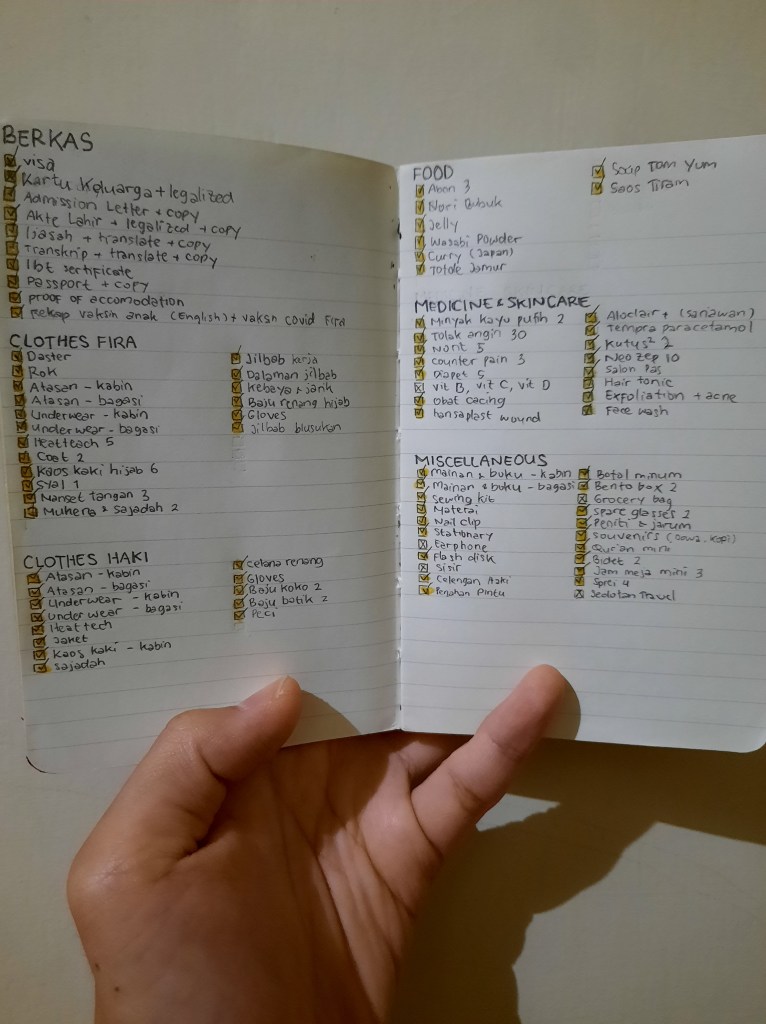 BERKAS
visa
Kartu Keluarga + legalized
Admission Letter + copy
Akte Lahir + legalized + copy
Ijasah + translate + copy
Transkrip + translate + copy
Ibt sertificate
Passport + copy
proof of accomodation
Rekap vaksin anak (English) + vaksin covid Fira
CLOTHES FIRA
Daster
Rok
Atasan - kabin
Atasan - bagasi
Underwear - kabin
Underwear - bagasi
Heatteach 5
Coat 2
Kaos kaki hijab 6
Syal 1
Manset tangan 3
Mukena & sajadah 2
Jilbab kerja
Dalaman jilbab
Kebaya & jarik
Baju renang hijab
Gloves
Jilbab blusukan
CLOTHES HAKI
Atasan - kabin
Atasan - bagasi
Underwear - kabin
Underwear - bagasi
Heat tech
Jaket
Kaos kaki - kabin
Sajadah
Celana renang
Gloves
Baju koko 2
Baju batik 2
Peci
FOOD
Abon 3
Nori Bubuk
Jelly
Wasabi Powder
Curry (Japan)
Totole Jamur
Soup Tom Yum
Saos Tiram
MEDICINE & SKINCARE
Minyak kayu putih 2
Tolak angin 30
Norit 5
Counter pain 3
Diapet 5
Vit B, vit C, vit D
Obat cacing
hansaplast wound
Aloclair + (sariawan)
Tempra paracetamol
Kutus² 2
Neozep 10
Salon pas
Hair tonic
Exfoliation + acne
Face wash
MISCELLANEOUS
Mainan & buku - kabin
Mainan & buku - bagasi
Sewing kit
Materai
Nail clip
Stationary
Earphone
Flash disk
Sisir
Celengan Haki
Pintu
Botol minum
Bento box 2
Grocery bag
Spare glasses 2
Peniti & jarum
Souvenirs
Qur'an mini
Bidet 2
Jam meja mini 3
Sprei 4
Sedotan Travel